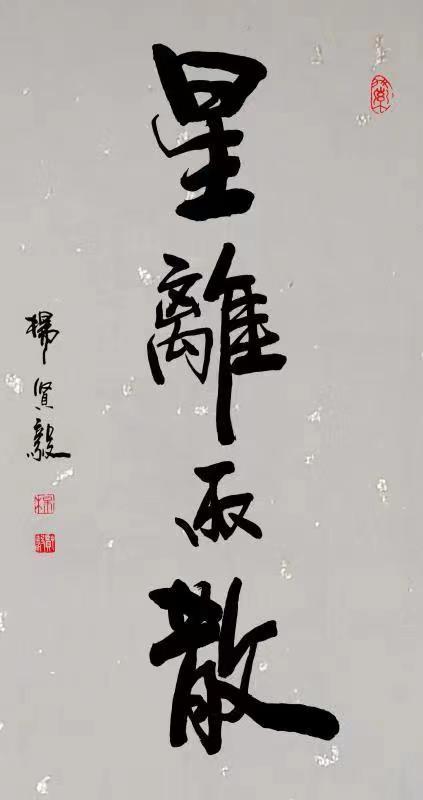 星離雨散
楊賢毅